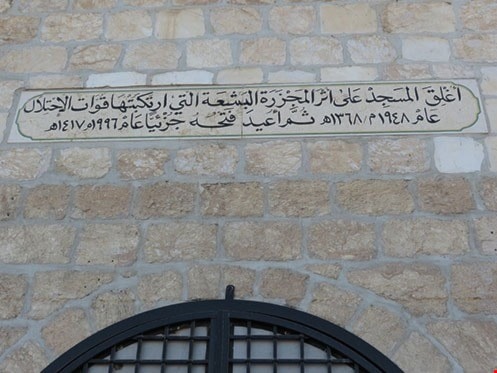 أغلق المسجد على أثر المجزرة البشعة التي ارتكبتها قوات الإحتلال
عام ١٩٤٨م/١٣٦٨هـ ثم أعيد فتحه جزئيا عام ١٩٩٦م ١٤١٧هـ